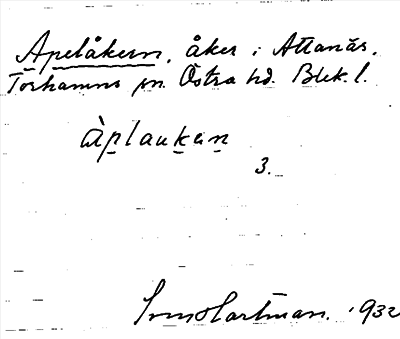 Apelåkern, åker i Attanäs,
Torhamns sn. Östra hd. Blek. l.
àplaukan
3.
Sven Hartman. 1932